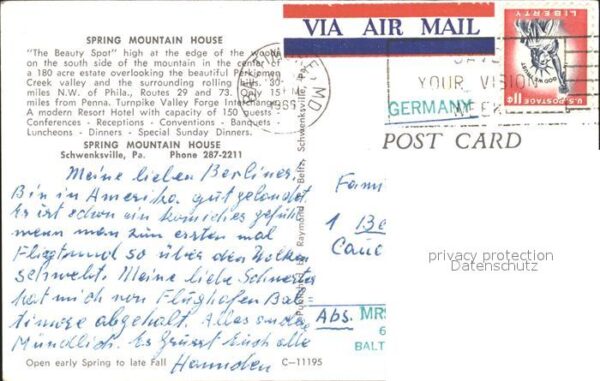 SPRING MOUNTAIN HOUSE
"The Beauty Spot" high at the edge of the woods
on the south side of the mountain in the center of
a 180 acre estate overlooking the beautiful Perkiomen
Creek valley and the surrounding rolling hills. 30
miles N.W. of Phila., Routes 29 and 73. Only 15
miles from Penna. Turnpike Valley Forge Interchange.
A modern Resort Hotel with capacity of 150 guests -
Conferences - Receptions - Conventions - Banquets -
Luncheons - Dinners - Special Sunday Dinners.
SPRING MOUNTAIN HOUSE
Schwenksville, Pa. Phone 287-2211
Meine lieben Berliner,
Bin in Amerika gut gelandet.
Es ist schon ein komisches gefühl
wenn man zum ersten mal
Fliegt und so über den Wolken
schwebt. Meine liebe Schwester
hat mich von Flughafen Bal=
timore abgehalt. Alles andere
Mündlich. Es Grüsst Euch alle
Hannchen
Open early Spring to late Fall C-11195
Published by Raymond Beltz, Schwenksville, Pa.
VIA AIR MAIL
MD
YOUR VISION
WEEK
GERMANY
U.S. POSTAGE 11¢
LIBERTY
POST CARD
Fam
1 Be
Abs. MRS
6
BALT
privacy protection
Datenschutz